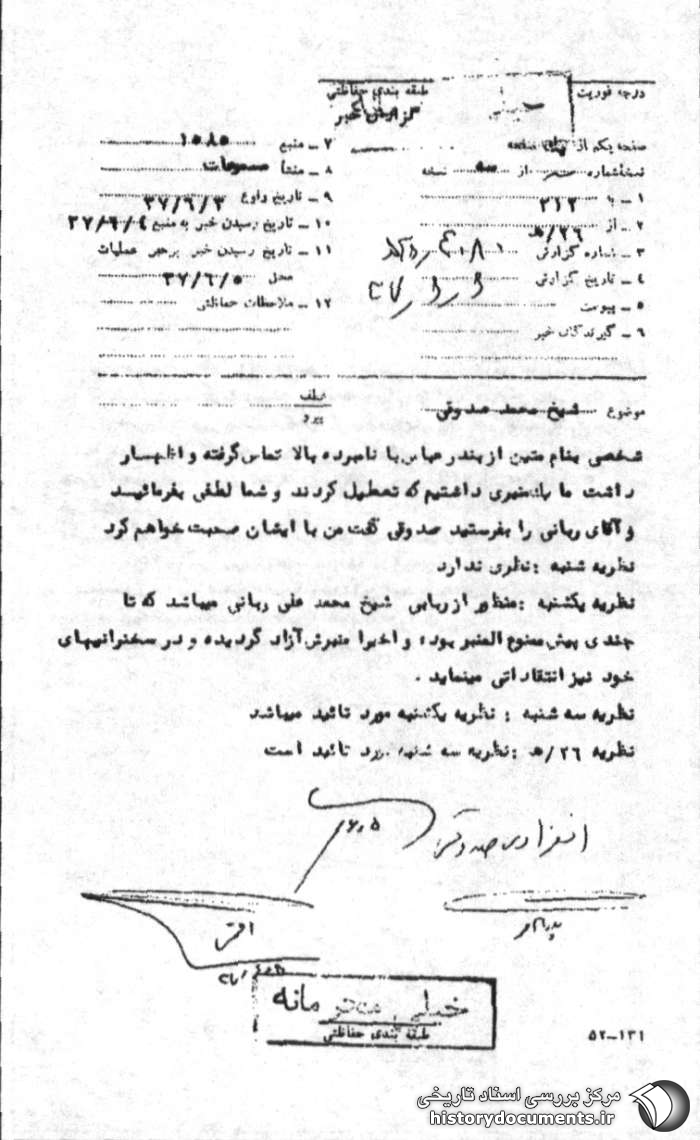 درجه فوریت
طبقه بندی حفاظتی
خیلی
گزارش خبر
صفحه یکم از یک صفحه
نسخه شماره از سه نسخه
۱ ـ به ۳۱۲
۲ ـ از ۲۶/هـ
۳ ـ شماره گزارش
۴ ـ تاریخ گزارش
۵ ـ پیوست
۶ ـ گیرندگان خبر
۷ ـ منبع ۱۵۸۵
۸ ـ منشأ مسموعات
۹ ـ تاریخ وقوع ۳۷/۶/۳
۱۰ ـ تاریخ رسیدن خبر به منبع ۳۷/۶/۴
۱۱ ـ تاریخ رسیدن خبر برهبر عملیات
محل ۳۷/۶/۵
۱۲ ـ ملاحظات حفاظتی
موضوع شیخ محمد صدوقی
عطف
پیرو
شخصی بنام متین از بندر عباس با نامبرده بالا تماس گرفته و اظهار
داشت ما یک منبری داشتیم که تعطیل کردند و شما لطفی بفرمائید
و آقای ربانی را بفرستید صدوقی گفت من با ایشان صحبت خواهم کرد
نظریه شنبه : نظری ندارد
نظریه یکشنبه : منظور از ربانی شیخ محمد علی ربانی میباشد که تا
چندی پیش ممنوع المنبر بوده و اخیرا منبرش آزاد گردیده و در سخنرانیهای
خود نیز انتقاداتی مینماید .
نظریه سه شنبه : نظریه یکشنبه مورد تائید میباشد
نظریه ۲۶/هـ : نظریه سه شنبه مورد تائید است
خیلی محرمانه
طبقه بندی حفاظتی
۵۲-۱۳۱
مرکز بررسی اسناد تاریخی
historydocuments.ir